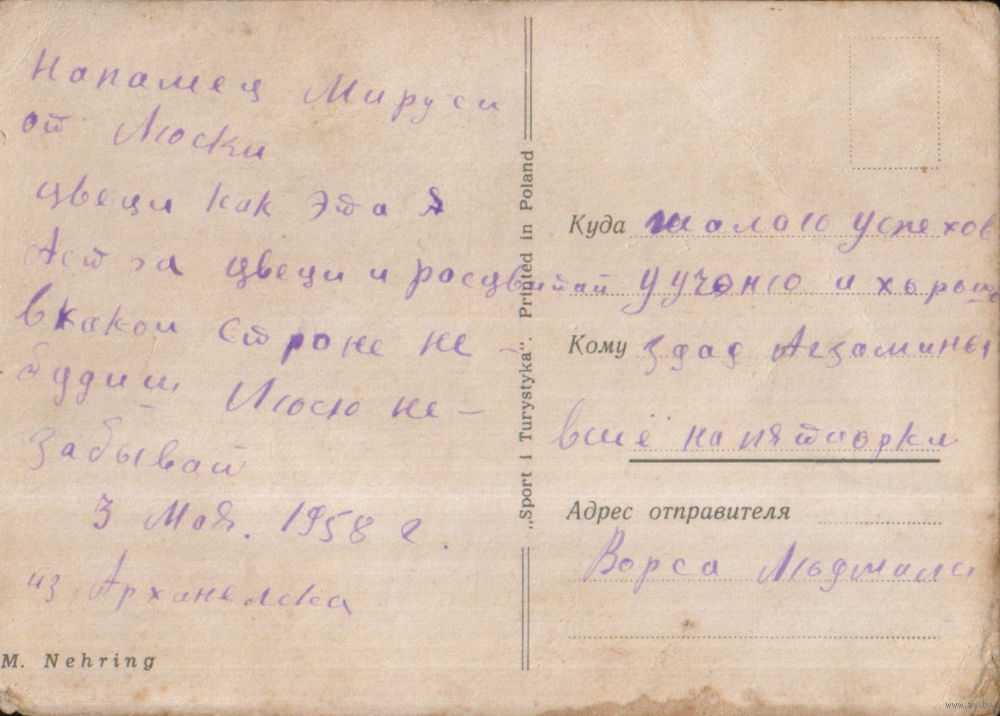 Напамец Мируси
от Люски
цвеци как эта я
Астра цвеци и росцвитай
в какои стороне не –
будиш Люсю не –
забывай
3 Мая. 1958 г.
из Арханелска
M. Nehring
„Sport i Turystyka“. Printed in Poland
Куда жалаю успехов
у учэню и хорошо
Кому здад Агзамины
всиё на пятаорки
Адрес отправителя
Ворса Людмила
www.ay.by